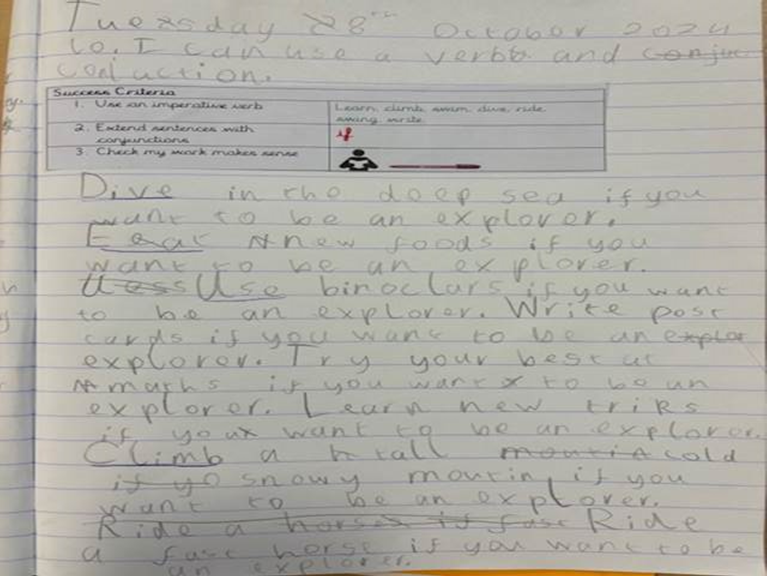 Tuesday 28th October 2024
Lo. I can use a verbb and conjuc
conluction.
Success Criteria
1. Use an imperative verb Learn, climb, swim, dive, ride, swing, write.
2. Extend sentences with conjunctions if
3. Check my work makes sense
Dive in the deep sea if you
want to be an explorer.
Eeat new foods if you
want to be an explorer.
Uess Use binoclars if you want
to be an explorer. Write post
cards if you want to be an explor
explorer. Try your best at
maths if you want to be an
explorer. Learn new triks
if you want to be an explorer.
Climb a tall mountin cold
if yo snowy mountin if you
want to be an explorer.
Ride a horses if fast Ride
a fast horse if you want to be
an explorer.